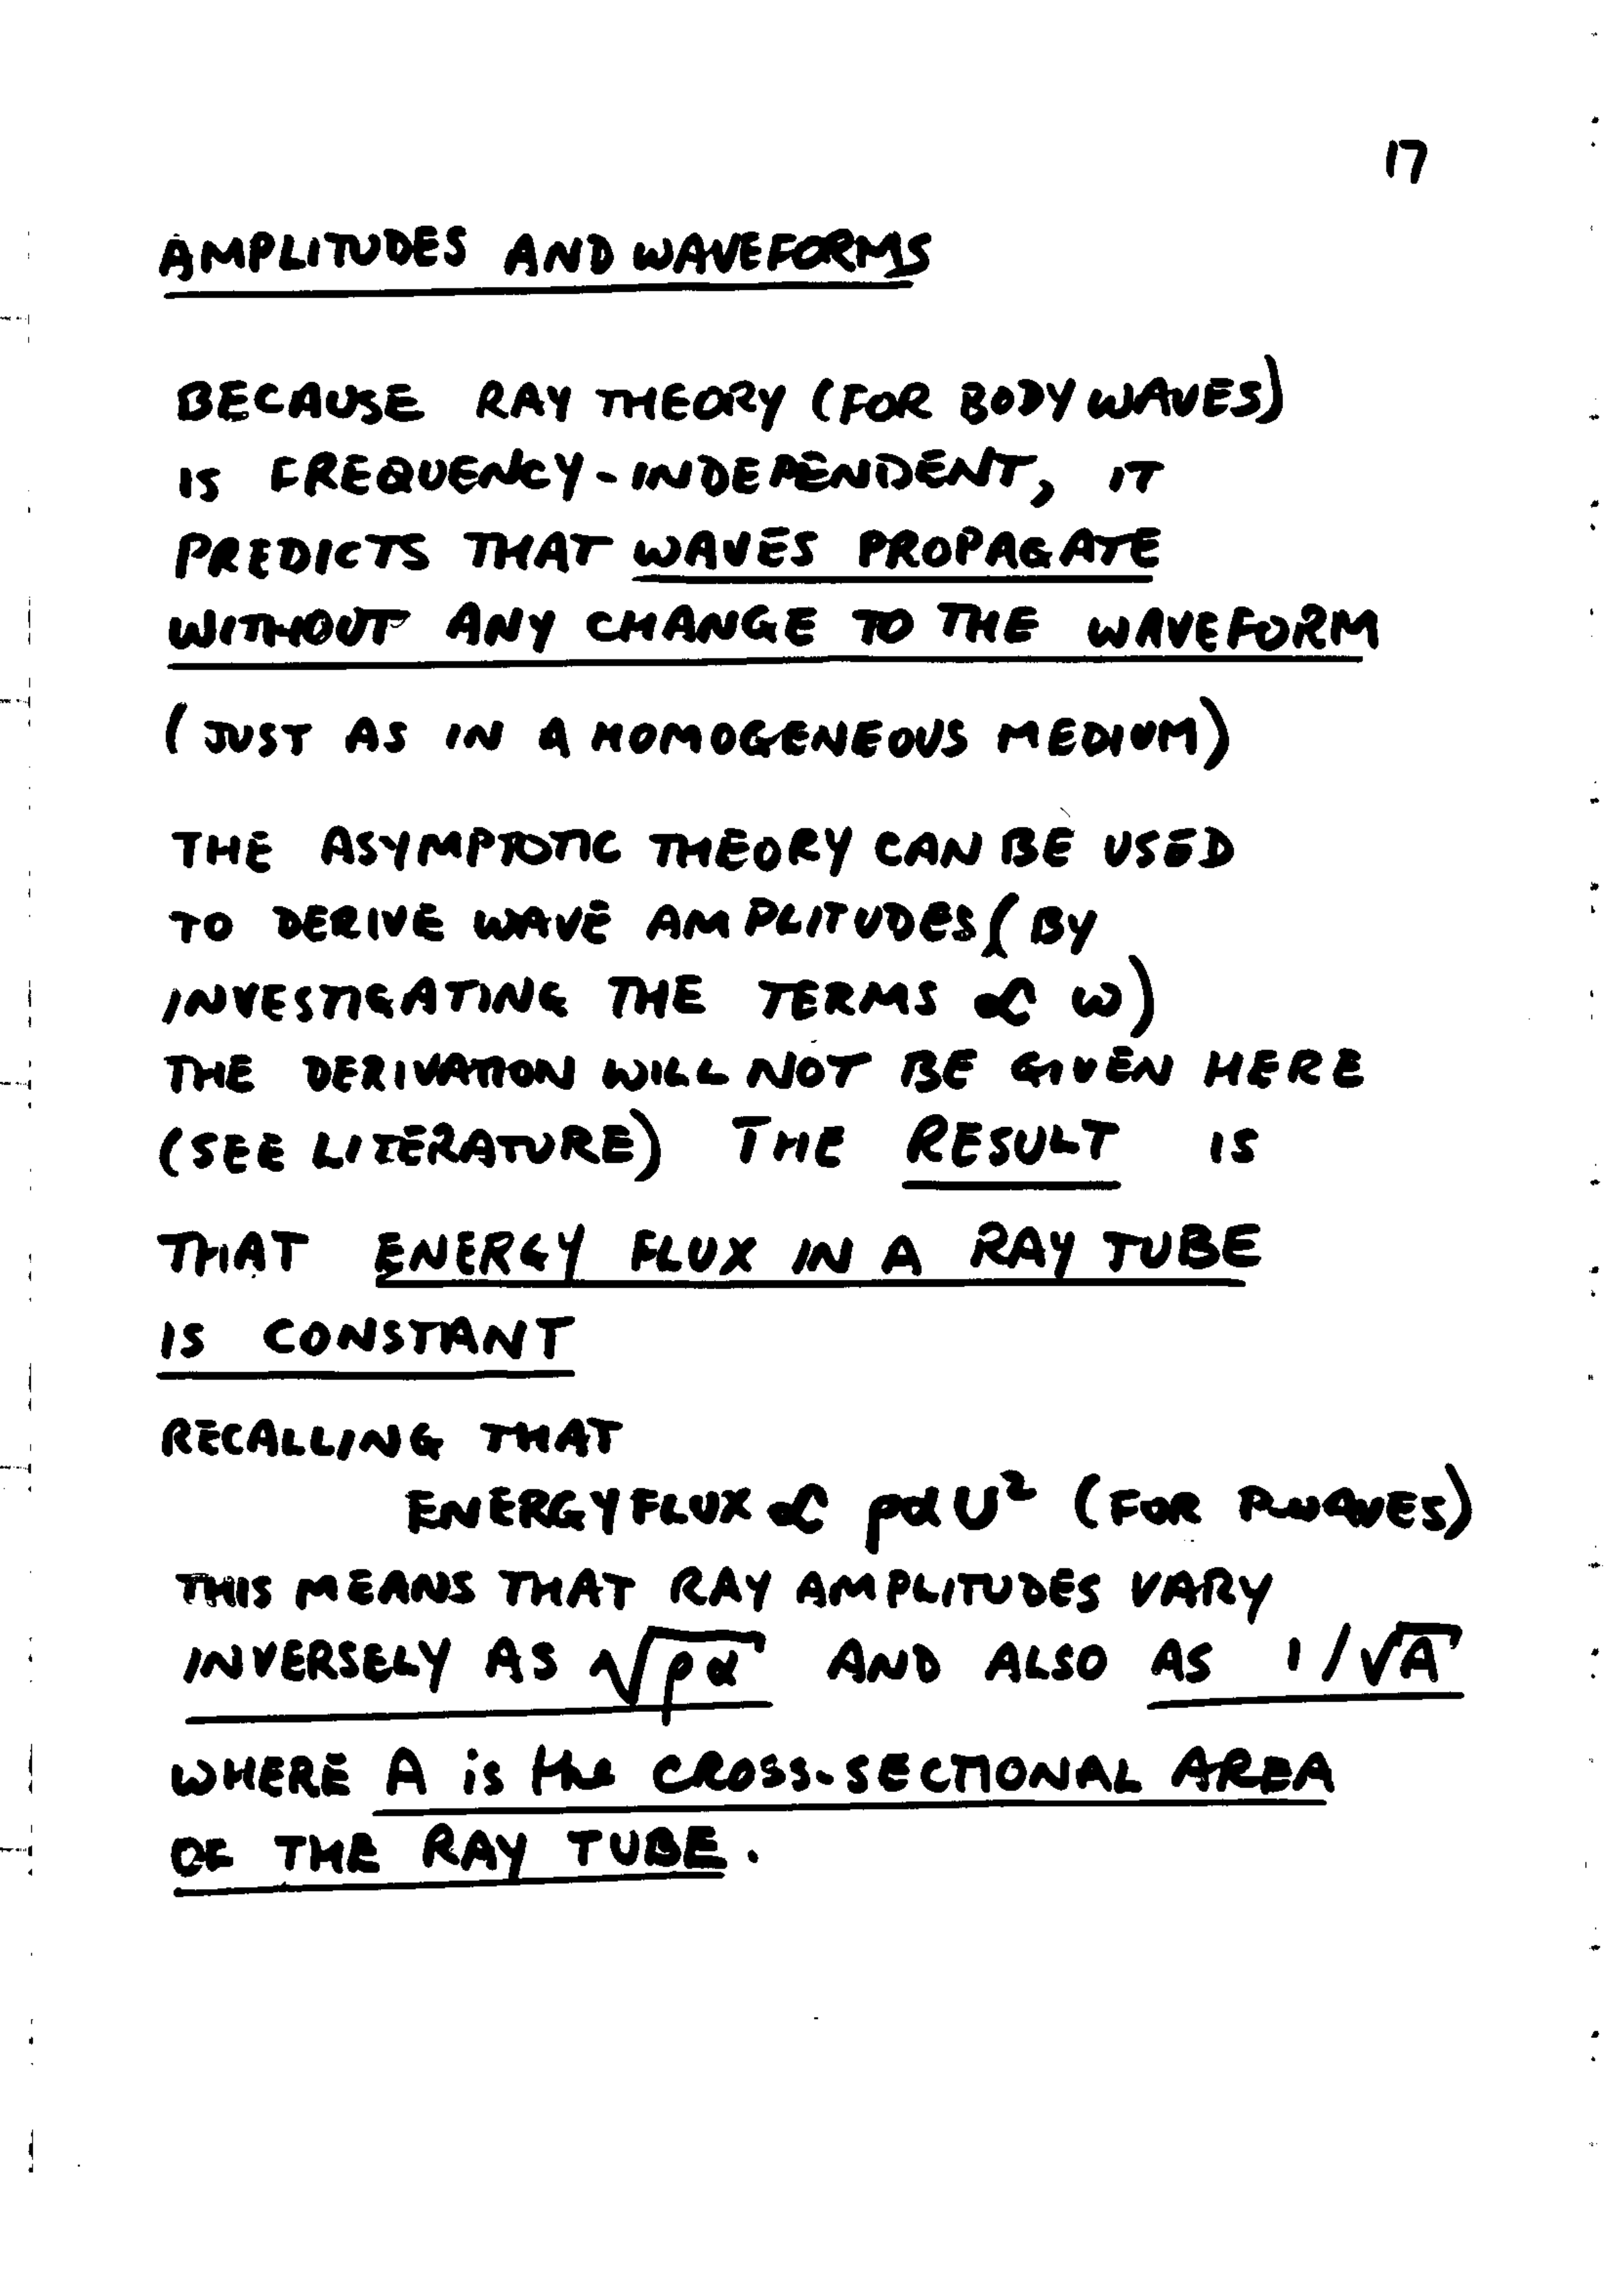 17
AMPLITUDES AND WAVEFORMS
BECAUSE RAY THEORY (FOR BODY WAVES)
IS FREQUENCY-INDEPENDENT, IT
PREDICTS THAT WAVES PROPAGATE
WITHOUT ANY CHANGE TO THE WAVEFORM
(JUST AS IN A HOMOGENEOUS MEDIUM)
THE ASYMPTOTIC THEORY CAN BE USED
TO DERIVE WAVE AMPLITUDES (BY
INVESTIGATING THE TERMS ∝ ω)
THE DERIVATION WILL NOT BE GIVEN HERE
(SEE LITERATURE) THE RESULT IS
THAT ENERGY FLUX IN A RAY TUBE
IS CONSTANT
RECALLING THAT
ENERGY FLUX ∝ ραU² (FOR P WAVES)
THIS MEANS THAT RAY AMPLITUDES VARY
INVERSELY AS √ρα AND ALSO AS 1/√A
WHERE A is the CROSS-SECTIONAL AREA
OF THE RAY TUBE.